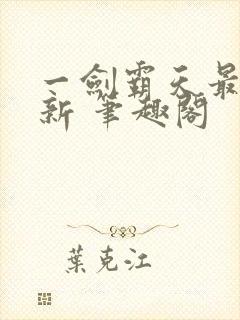 一劍霸天最
新 筆趣閣
葉克江